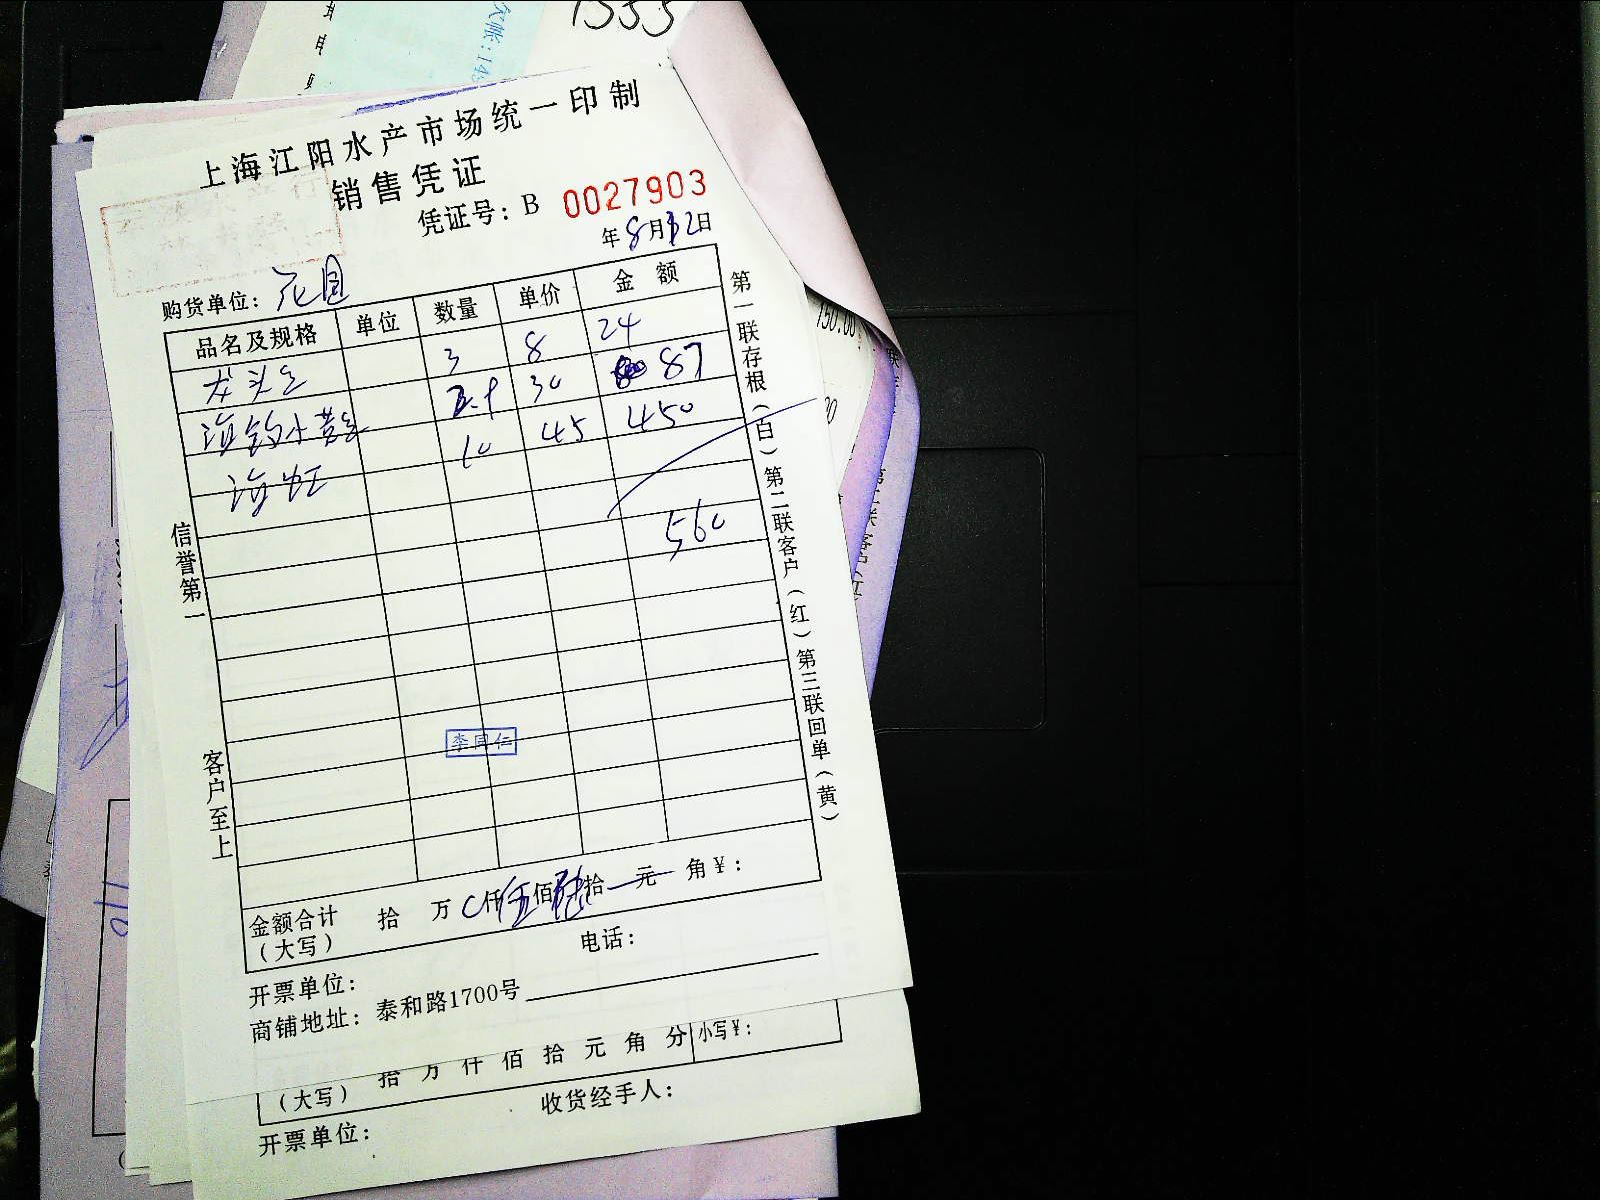 1555
欠帐:14
上海江阳水产市场统一印制
销售凭证
凭证号: B 0027903
年8月12日
购货单位: 花园
品名及规格 单位 数量 单价 金额
龙头 3 8 24
海钓小黄 2.9 30 87
海虹 10 45 450
560
第一联存根(白) 第二联客户(红) 第三联回单(黄)
信誉第一
客户至上
李同仁
金额合计 拾 万 仟伍佰陆拾 元 角¥:
(大写)
电话:
开票单位:
商铺地址: 泰和路1700号
拾 万 仟 佰 拾 元 角 分 小写¥:
(大写)
收货经手人:
开票单位:
150.00